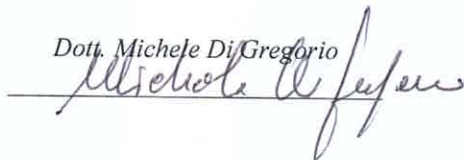 Dott. Michele Di Gregorio
Michele Di Gregorio